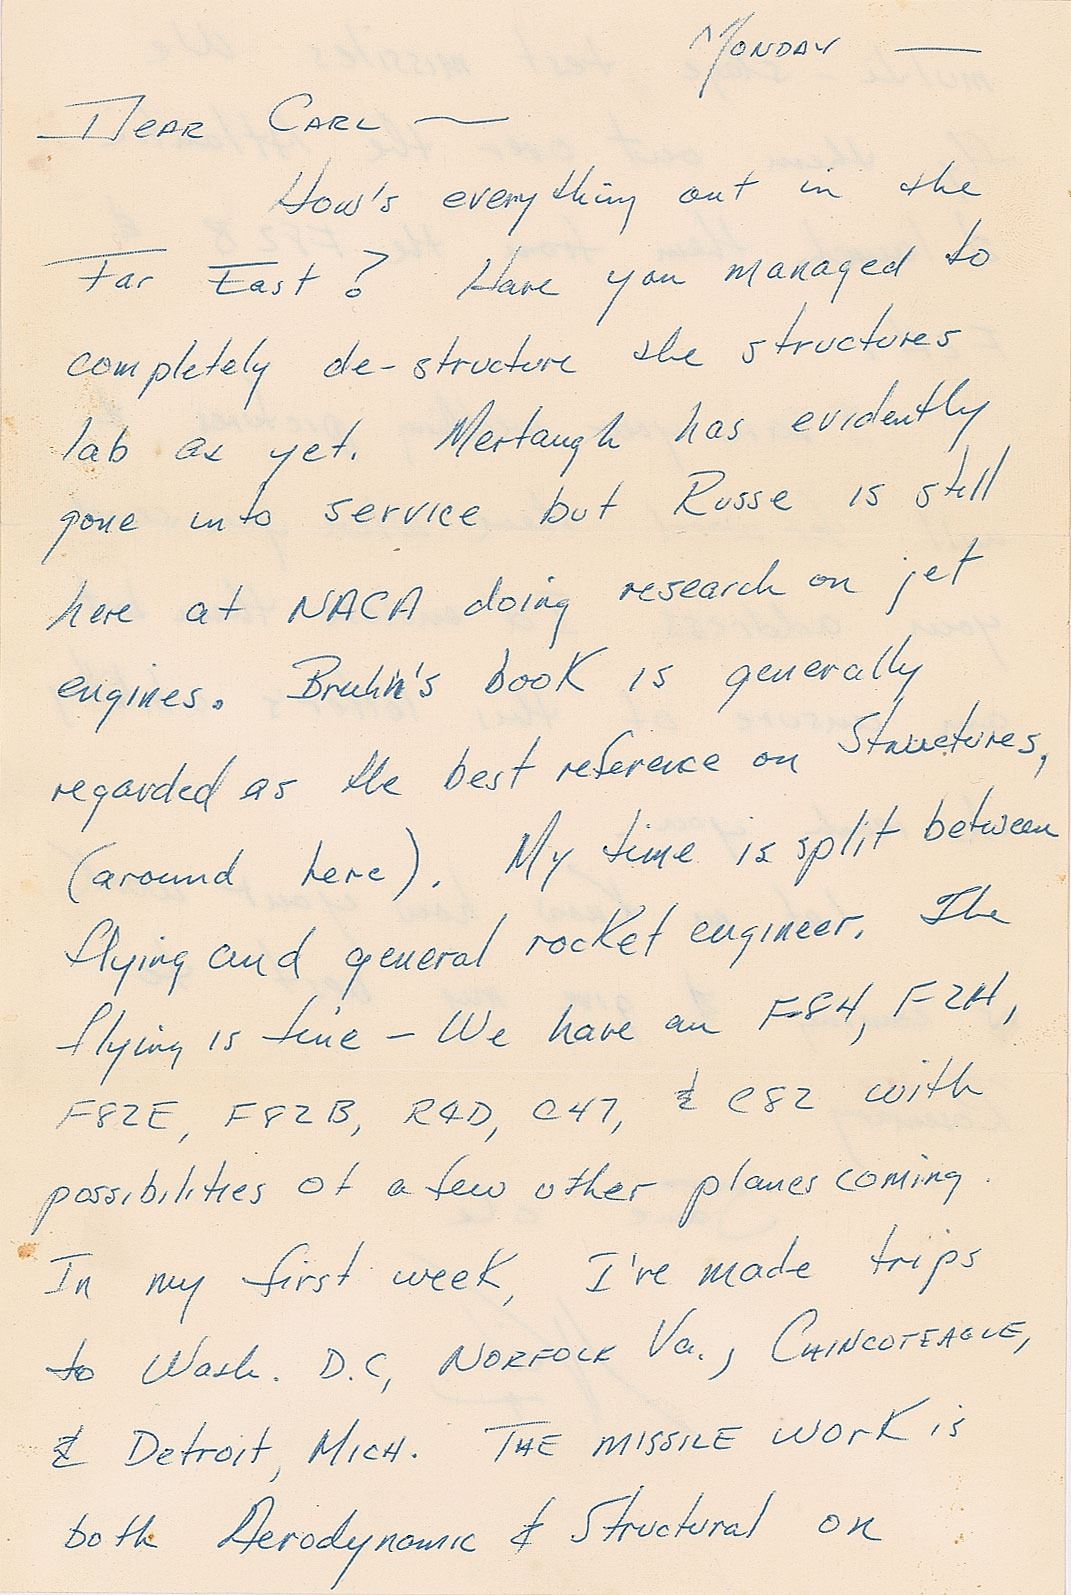 Monday —
Dear Carl —
How's everything out in the
Far East? Have you managed to
completely de-structure the structures
lab as yet. Mertaugh has evidently
gone into service but Russe is still
here at NACA doing research on jet
engines. Bruhn's book is generally
regarded as the best reference on Structures,
(around here). My time is split between
flying and general rocket engineer. The
flying is fine — We have an F-84, F2H,
F82E, F82B, R4D, C47, & C82 with
possibilities of a few other planes coming.
In my first week, I've made trips
to Wash. D.C, Norfolk Va., Chincoteague,
& Detroit, Mich. The missile work is
both Aerodynamic & Structural on